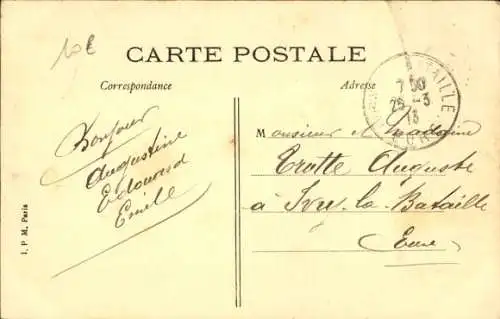 10€
CARTE POSTALE
Correspondance
Adresse
BATAILLE
7 50
25 - 3
13
EURE
Bonjour
Augustine
Edouard
Emile
Monsieur et Madame
Trotte Auguste
à Ivry-la-Bataille
Eure
I. P. M. Paris